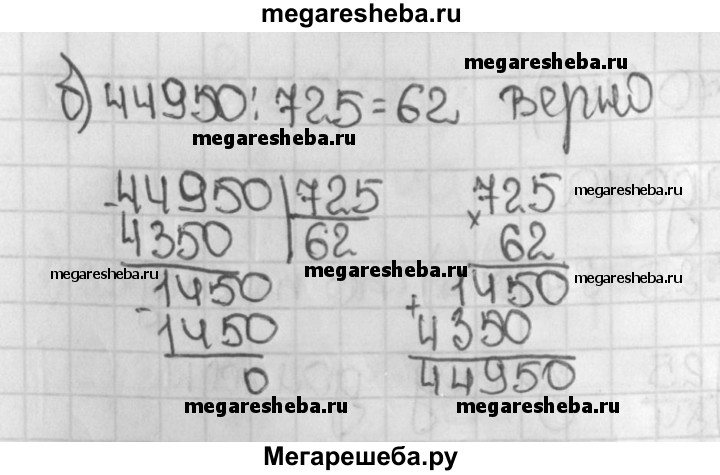 megaresheba.ru
б) 44950 : 725 = 62 верно
megaresheba.ru
megaresheba.ru
- 44950 | 725
4350 | 62
- 1450
1450
0
× 725
62
+ 1450
4350
44950
megaresheba.ru
megaresheba.ru
megaresheba.ru
megaresheba.ru
megaresheba.ru
megaresheba.ru
megaresheba.ru
Мегарешеба.ру